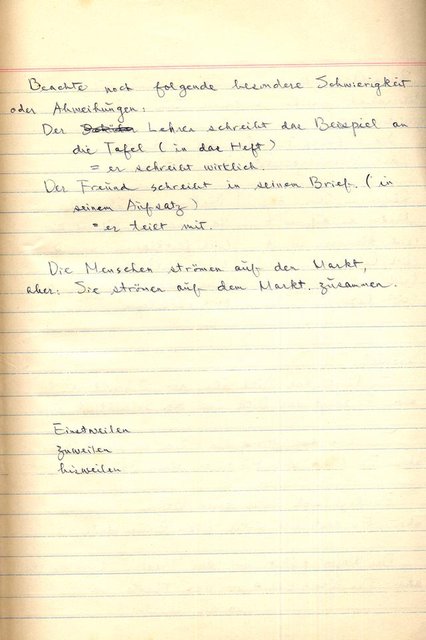 Beachte noch folgende besondere Schwierigkeit
oder Abweichungen:
Der Lehrer schreibt das Beispiel an
die Tafel (in das Heft)
= er schreibt wirklich.
Der Freund schreibt in seinem Brief. (in
seinem Aufsatz)
= er teilt mit.
Die Menschen strömen auf den Markt,
aber: Sie strömen auf dem Markt. zusammen.
Einstweilen
zuweilen
bisweilen